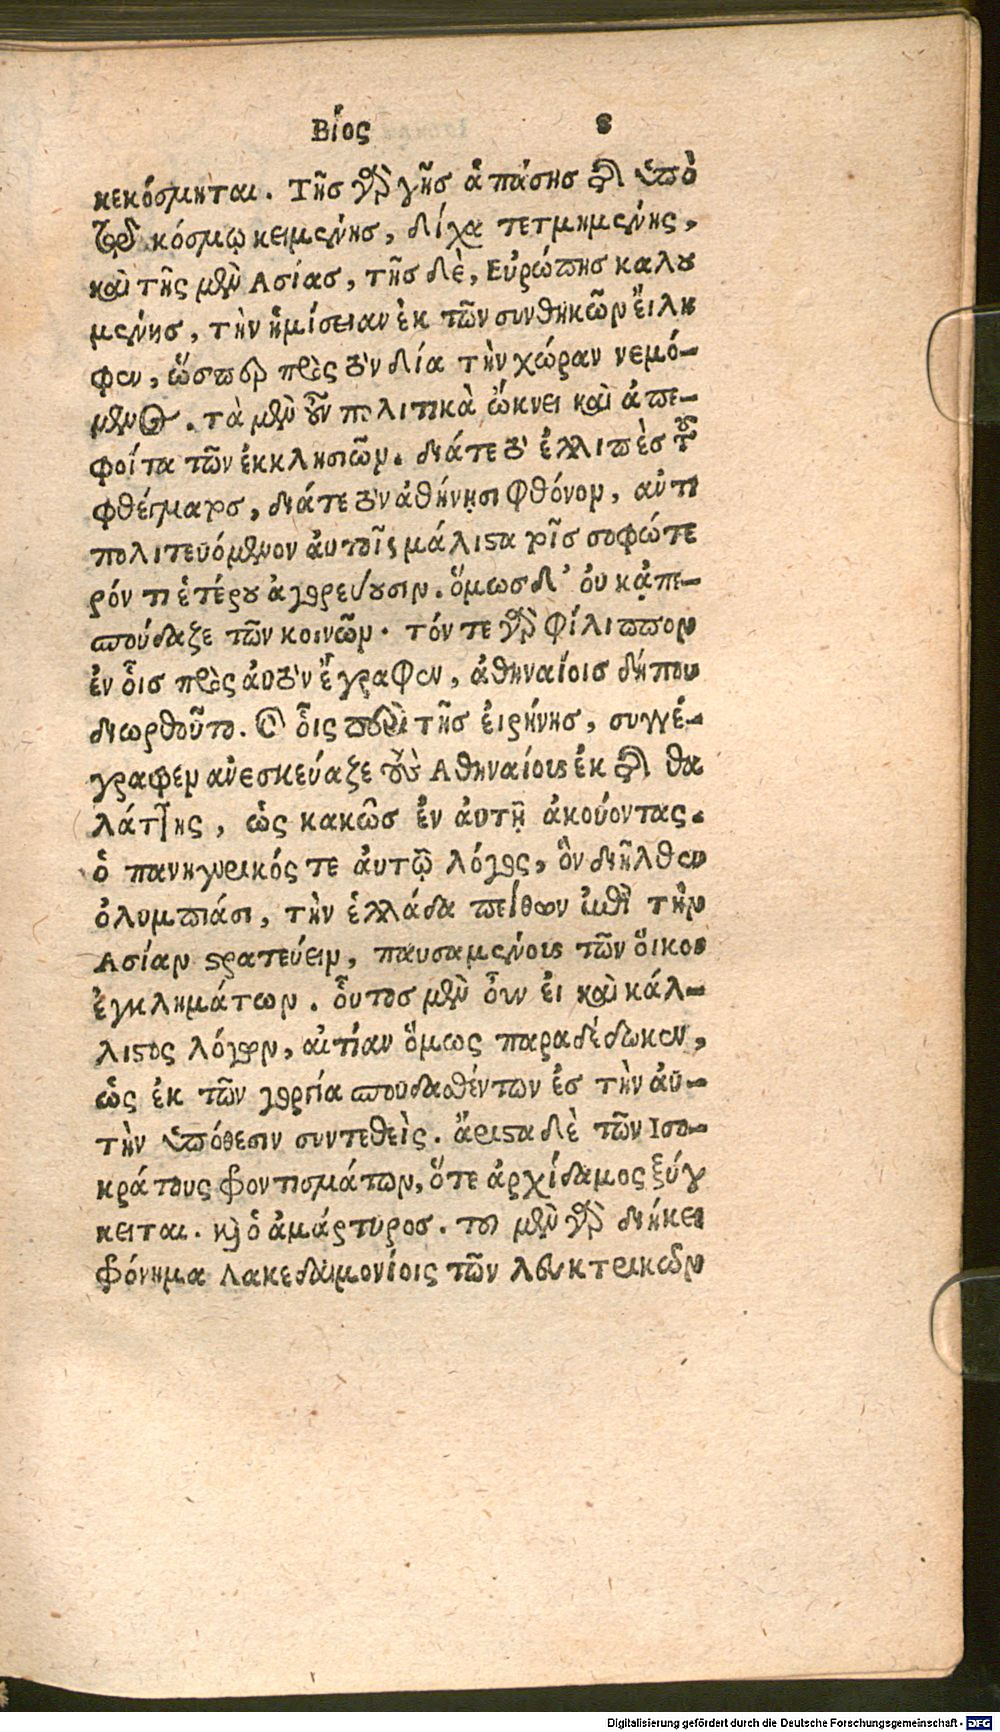 Βίος 8
κεκόσμηται. Τῆσ γὰρ γῆσ ἁπάσησ τῆσ ὑπὸ
τῷ κόσμῳ κειμένησ, δίχα τετμημένης,
καὶ τῆς μὲν Ασίασ, τῆσ δὲ, Εὐρώπησ καλου
μένησ, τὴν ἡμίσειαν ἐκ τῶν συνθηκῶν εἴλη
φεν, ὥσπερ πρὸς τὸν δία τὴν χώραν νεμό-
μενος. τὰ μὲν οὖν πολιτικὰ ὤκνει καὶ ἀπε-
φοίτα τῶν ἐκκλησιῶν. διάτε τὸ ἐλλιπὲσ τοῦ
φθέγματοσ, διάτε τὸν ἀθήνῃσι φθόνον, αὐτὶ
πολιτευόμενον ἀυτοῖς μάλιστα τοῖσ σοφώτε
ρόν τι ἑτέρου ἀγορεύουσιν. ὅμωσ δ' ὀυκ ἀπε-
σπούδαζε τῶν κοινῶν. τόν τε γὰρ φίλιππον
ἐν ὅισ πρὸς ἀυτὸν ἔγραφεν, ἀθηναίοισ δήπου
διωρθοῦτο. καὶ ὅις περὶ τῆσ ἐιρήνησ, συγγέ-
γραφεν ἀνεσκεύαζε τοὺς Αθηναίους ἐκ τῆσ θα
λάττης, ὡς κακῶσ ἐν ἀυτῇ ἀκούοντας.
ὁ πανηγυρικός τε ἀυτῷ λόγος, ὃν διῆλθεν
ὀλυμπιάσι, τὴν ἑλλάδα πείθων ἐπὶ τὴν
Ασίαν στρατεύειν, παυσαμένους τῶν ὄικοι
ἐγκλημάτων. ὅυτοσ μὲν ὄυν ἐι καὶ κάλ-
λιστος λόγων, ἀιτίαν ὅμως παραδέδωκεν,
ὡς ἐκ τῶν γοργία σπουδασθέντων ἐσ τὴν ἀυ-
τὴν ὑπόθεσιν συντεθεὶς. ἄριστα δὲ τῶν Ισο-
κράτους φροντισμάτων, ὅτε ἀρχίδαμος ξύγ
κειται. καὶ ὁ ἀμάρτυροσ. τοῦ μὲν γὰρ διήκει
φρόνημα Λακεδαιμονίοις τῶν λευκτρικῶν
Digitalisierung gefördert durch die Deutsche Forschungsgemeinschaft - DFG